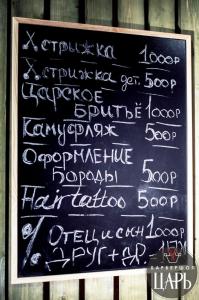 Хстрижка 1000Р
Хстрижка дет. 500Р
Царское
Бритьё 1000Р
Камуфляж 500Р
Оформление
Бороды 500Р
Hair tattoo 500Р
% Отец и сын 1000Р
Друг+др
БАРБЕРШОП
ЦАРЬ